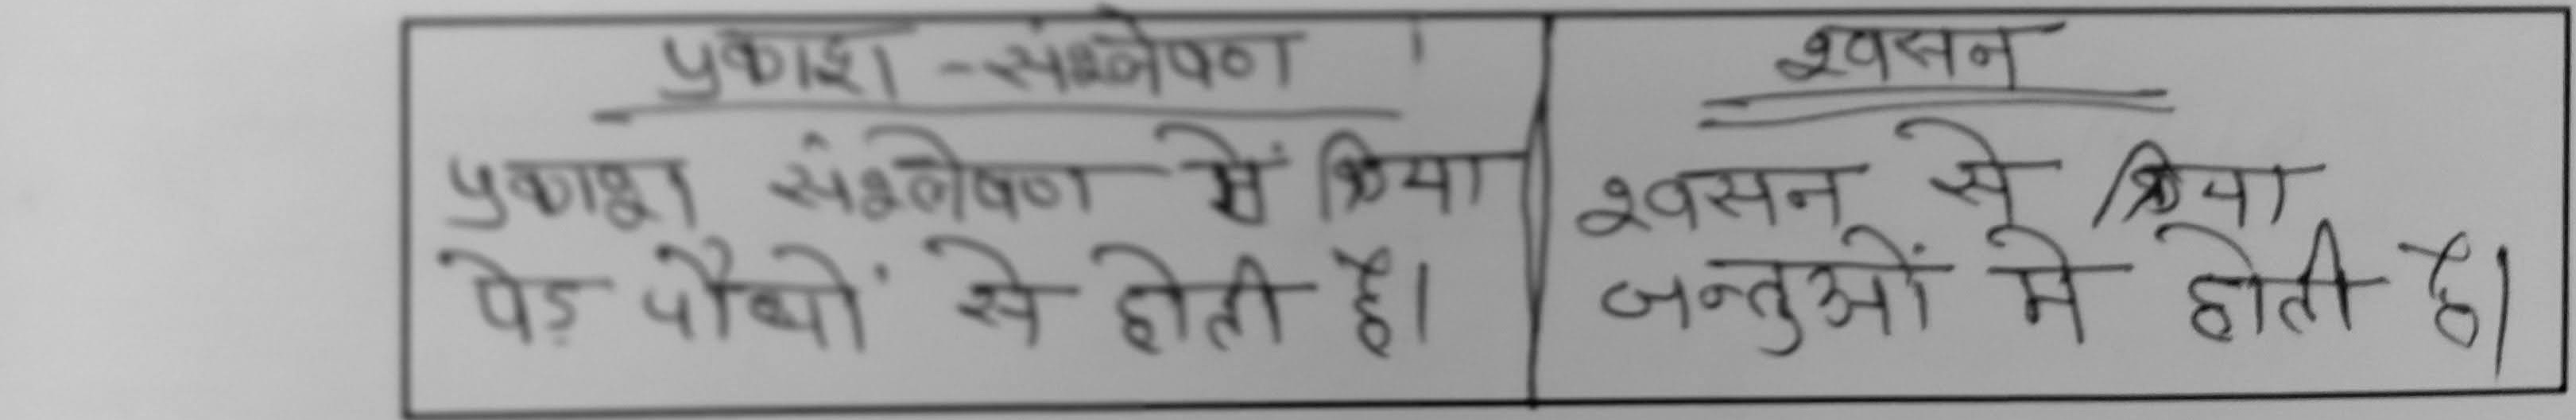 प्रकाश - संश्लेषण
प्रकाश संश्लेषण में क्रिया
पेड़ पौधों से होती है।
श्वसन
श्वसन से क्रिया
जन्तुओं मे होती है।